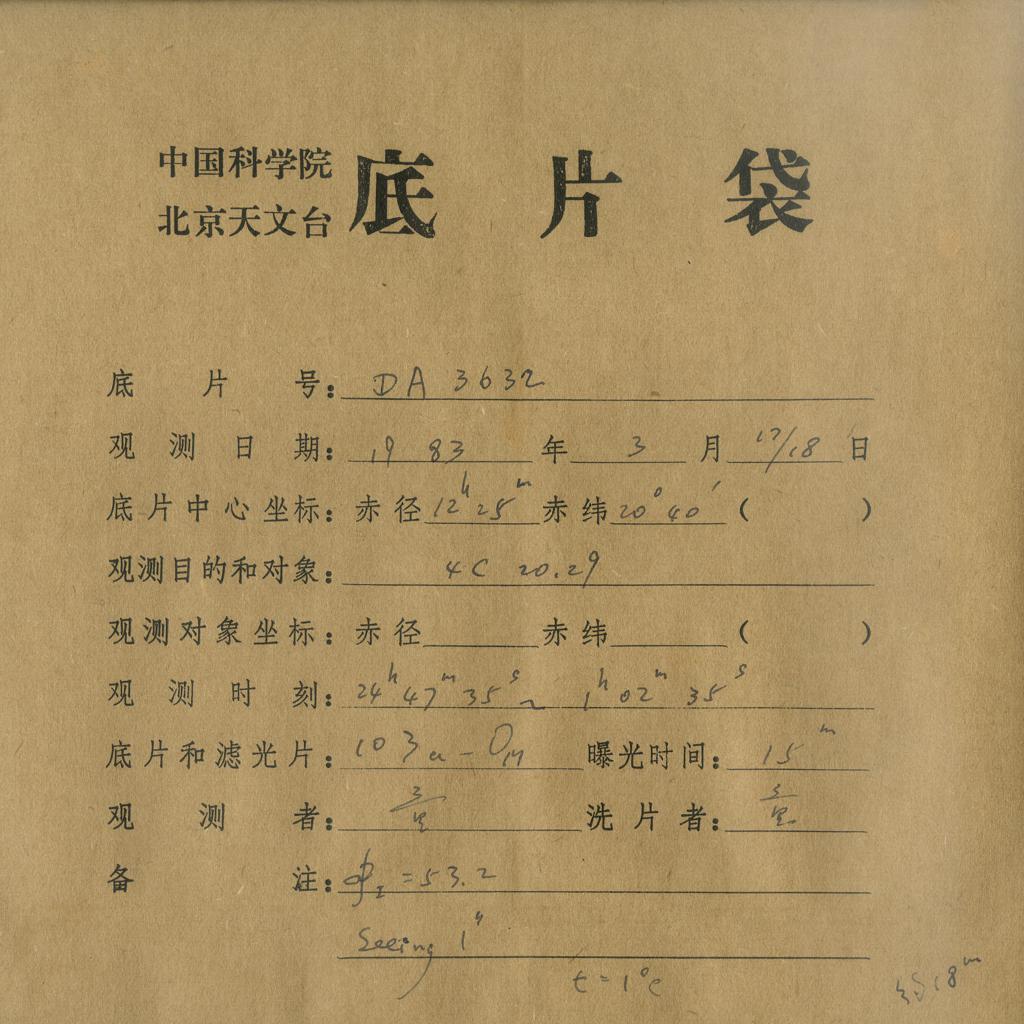 中国科学院
北京天文台
底片袋
底片号：DA 3632
观测日期：1983年3月17/18日
底片中心坐标：赤径12ʰ25ᵐ赤纬20°40′（ ）
观测目的和对象：4C 20.29
观测对象坐标：赤径 赤纬 （ ）
观测时刻：24ʰ47ᵐ35ˢ~1ʰ02ᵐ35ˢ
底片和滤光片：103a-O 曝光时间：15ᵐ
观测者： 洗片者：
备注：=53.2
Seeing 1″
t=1°C
18ᵐ